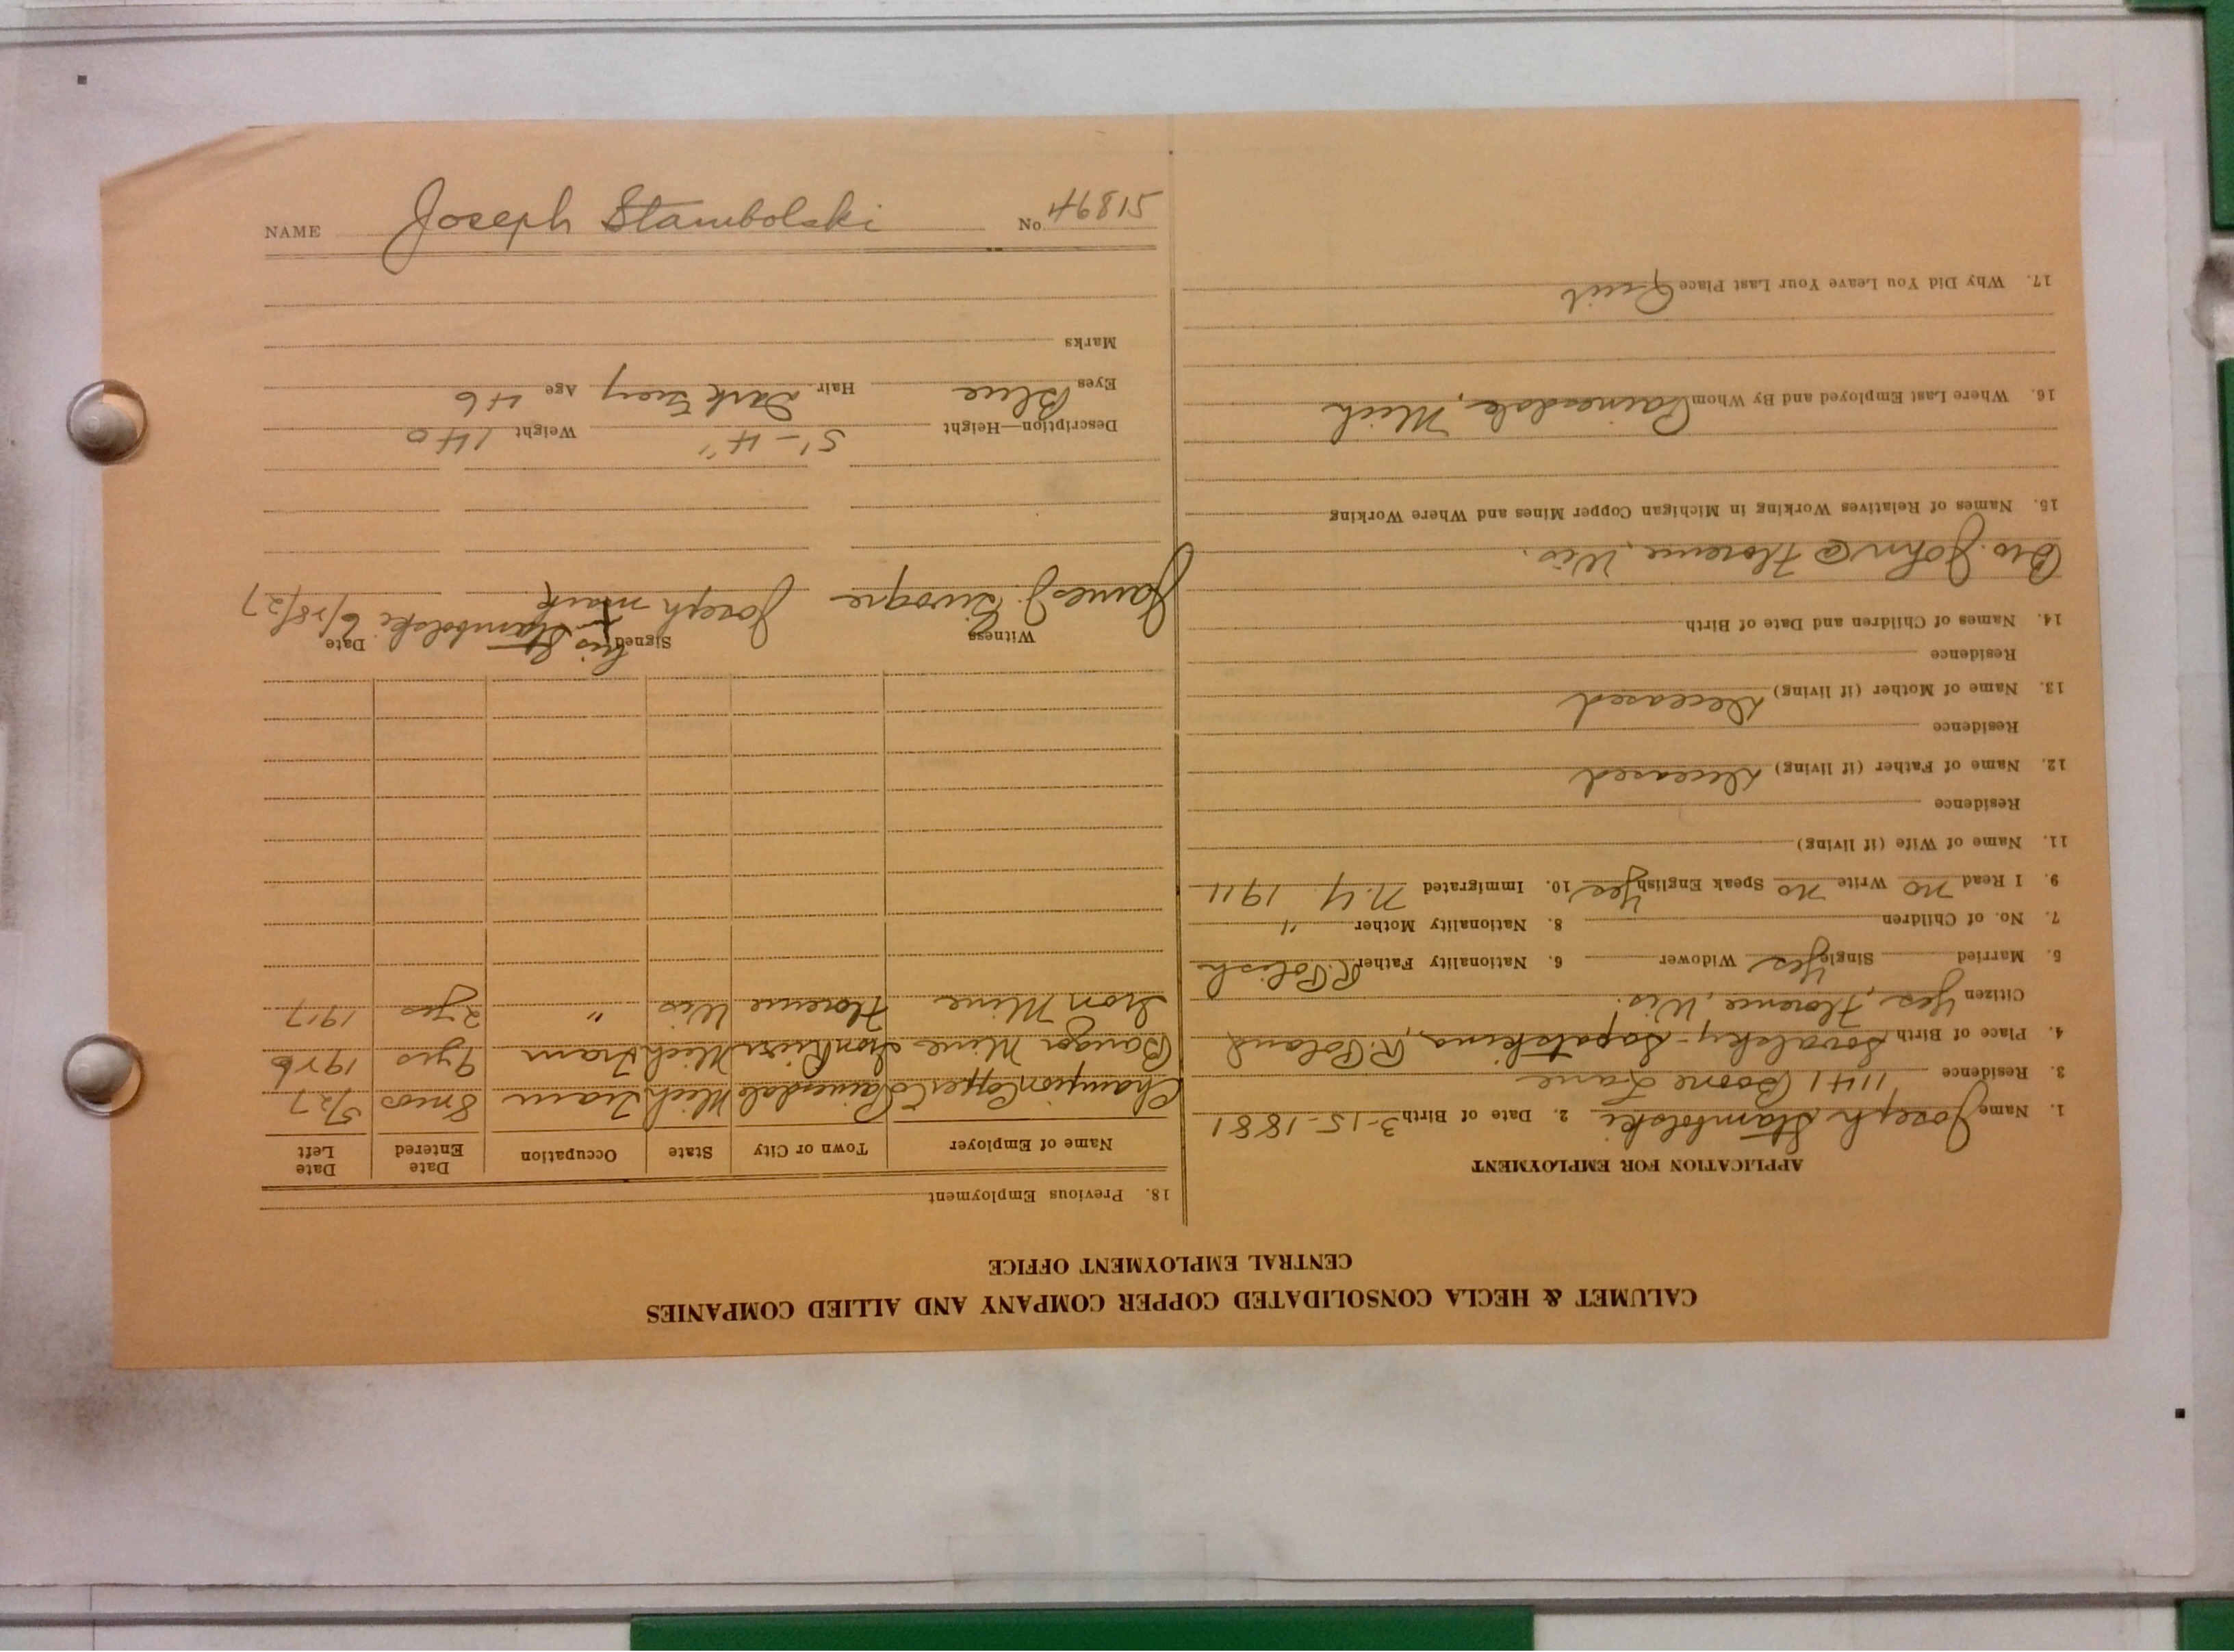 NAME Joseph Stambolski No. 46815
CALUMET & HECLA CONSOLIDATED COPPER COMPANY AND ALLIED COMPANIES
CENTRAL EMPLOYMENT OFFICE
APPLICATION FOR EMPLOYMENT
1. Name Joseph Stambolski 2. Date of Birth 3-15-1881
3. Residence 1141 Boone Lane
4. Place of Birth Sovalsky - Sapotskina, R. Poland
Citizen Yes, Florence, Wis.
5. Married Single Yes Widower 6. Nationality Father R. Polish
7. No. of Children 8. Nationality Mother "
9. I Read no Write no Speak English Yes 10. Immigrated N.Y. 1911
11. Name of Wife (if living)
Residence
12. Name of Father (if living) Deceased
Residence
13. Name of Mother (if living) Deceased
Residence
14. Names of Children and Date of Birth
Bro. John @ Florence, Wis.
15. Names of Relatives Working in Michigan Copper Mines and Where Working
16. Where Last Employed and By Whom Painesdale, Mich
17. Why Did You Leave Your Last Place Quit
18. Previous Employment
Name of Employer Town or City State Occupation Date Entered Date Left
Champion Copper Co Painesdale Mich Tram 8 mos 5/27
Bangor Mine Iron River Mich Tram 9 yrs 1926
Iron Mine Florence Wis " 2 yrs 1917
Witness Signed his Date
James J. Joseph X Stambolski 6/28/27
mark
Description—Height 5'-4" Weight 140
Eyes Blue Hair Dark Grey Age 46
Marks